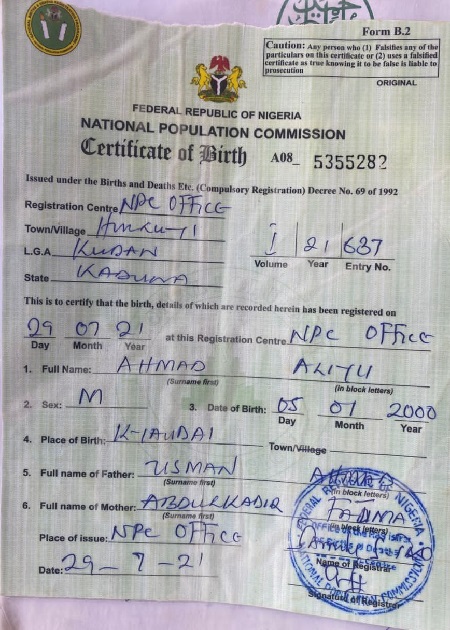 Form B.2
Caution: Any person who (1) Falsifies any of the
particulars on this certificate or (2) uses a falsified
certificate as true knowing it to be false is liable to
prosecution
ORIGINAL
FEDERAL REPUBLIC OF NIGERIA
NATIONAL POPULATION COMMISSION
Certificate of Birth A08_ 5355282
Issued under the Births and Deaths Etc. (Compulsory Registration) Decree No. 69 of 1992
Registration Centre NPC OFFICE
Town/Village
L.G.A KUDAN
State KADUNA
I 21 637
Volume Year Entry No.
This is to certify that the birth, details of which are recorded herein has been registered on
29 07 21 at this Registration Centre NPC OFFICE
Day Month Year
1. Full Name: AHMAD ALIYU
(Surname first) (in block letters)
2. Sex: M 3. Date of Birth: 05 01 2000
Day Month Year
4. Place of Birth: K-JAUDAI Town/Village
5. Full name of Father: USMAN
(Surname first) (in block letters)
6. Full name of Mother: ABDULKADIR
(Surname first) (in block letters)
Place of issue: NPC OFFICE
Name of Registrar
Date: 29_ 7 - 21
Signature of Registrar